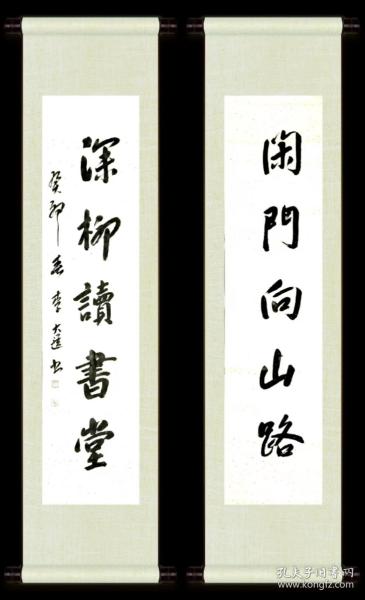 閑門向山路
深柳讀書堂
癸卯春李大進书
孔夫子旧书网
www.kongfz.com